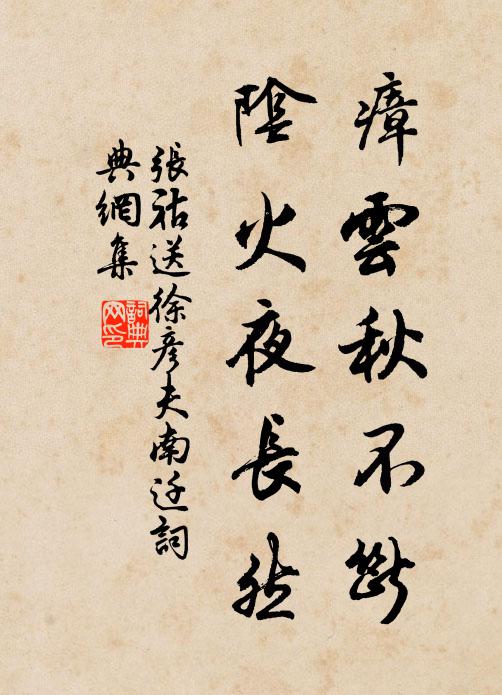 瘴雲秋不斷
陰火夜長然
張祜送徐彥夫南迁詞
典網集
詞典网印